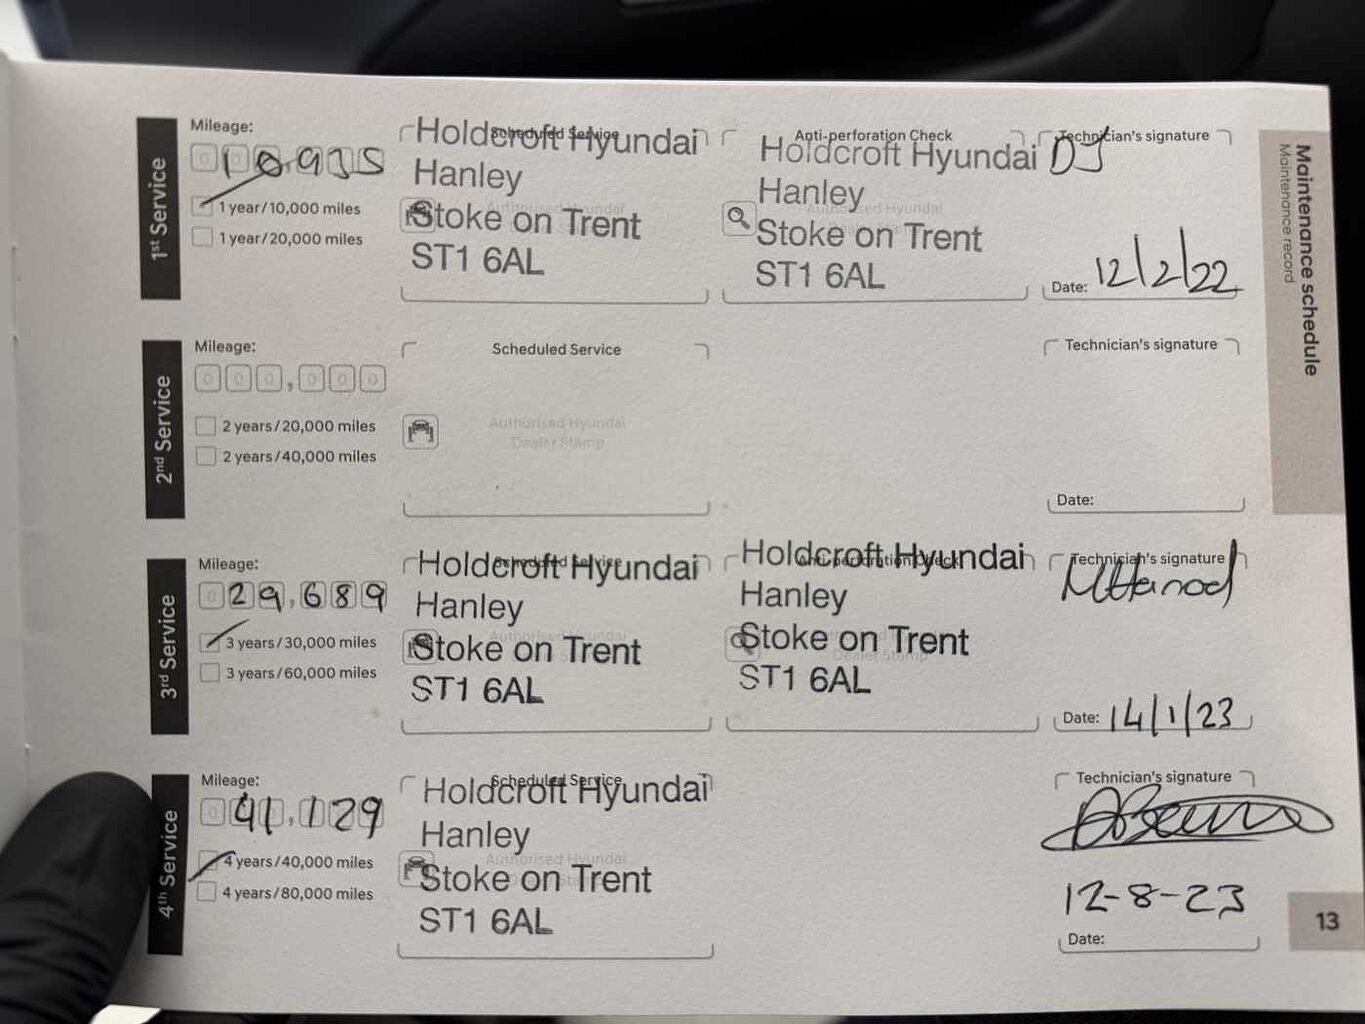 Maintenance schedule
Maintenance record
1st Service
Mileage:
10,935
1 year/10,000 miles
1 year/20,000 miles
Scheduled Service
Holdcroft Hyundai
Hanley
Stoke on Trent
ST1 6AL
Anti-perforation Check
Authorised Hyundai
Holdcroft Hyundai
Hanley
Stoke on Trent
ST1 6AL
Technician's signature
DJ
Date: 12/2/22
2nd Service
Mileage:
000,000
2 years/20,000 miles
2 years/40,000 miles
Scheduled Service
Authorised Hyundai
Dealer Stamp
Technician's signature
Date:
3rd Service
Mileage:
029,689
3 years/30,000 miles
3 years/60,000 miles
Scheduled Service
Holdcroft Hyundai
Hanley
Authorised Hyundai
Stoke on Trent
ST1 6AL
Anti-perforation Check
Holdcroft Hyundai
Hanley
Stoke on Trent
Dealer Stamp
ST1 6AL
Technician's signature
Date: 14/1/23
4th Service
Mileage:
041,129
4 years/40,000 miles
4 years/80,000 miles
Scheduled Service
Holdcroft Hyundai
Hanley
Authorised Hyundai
Stoke on Trent
ST1 6AL
Technician's signature
12-8-23
Date:
13